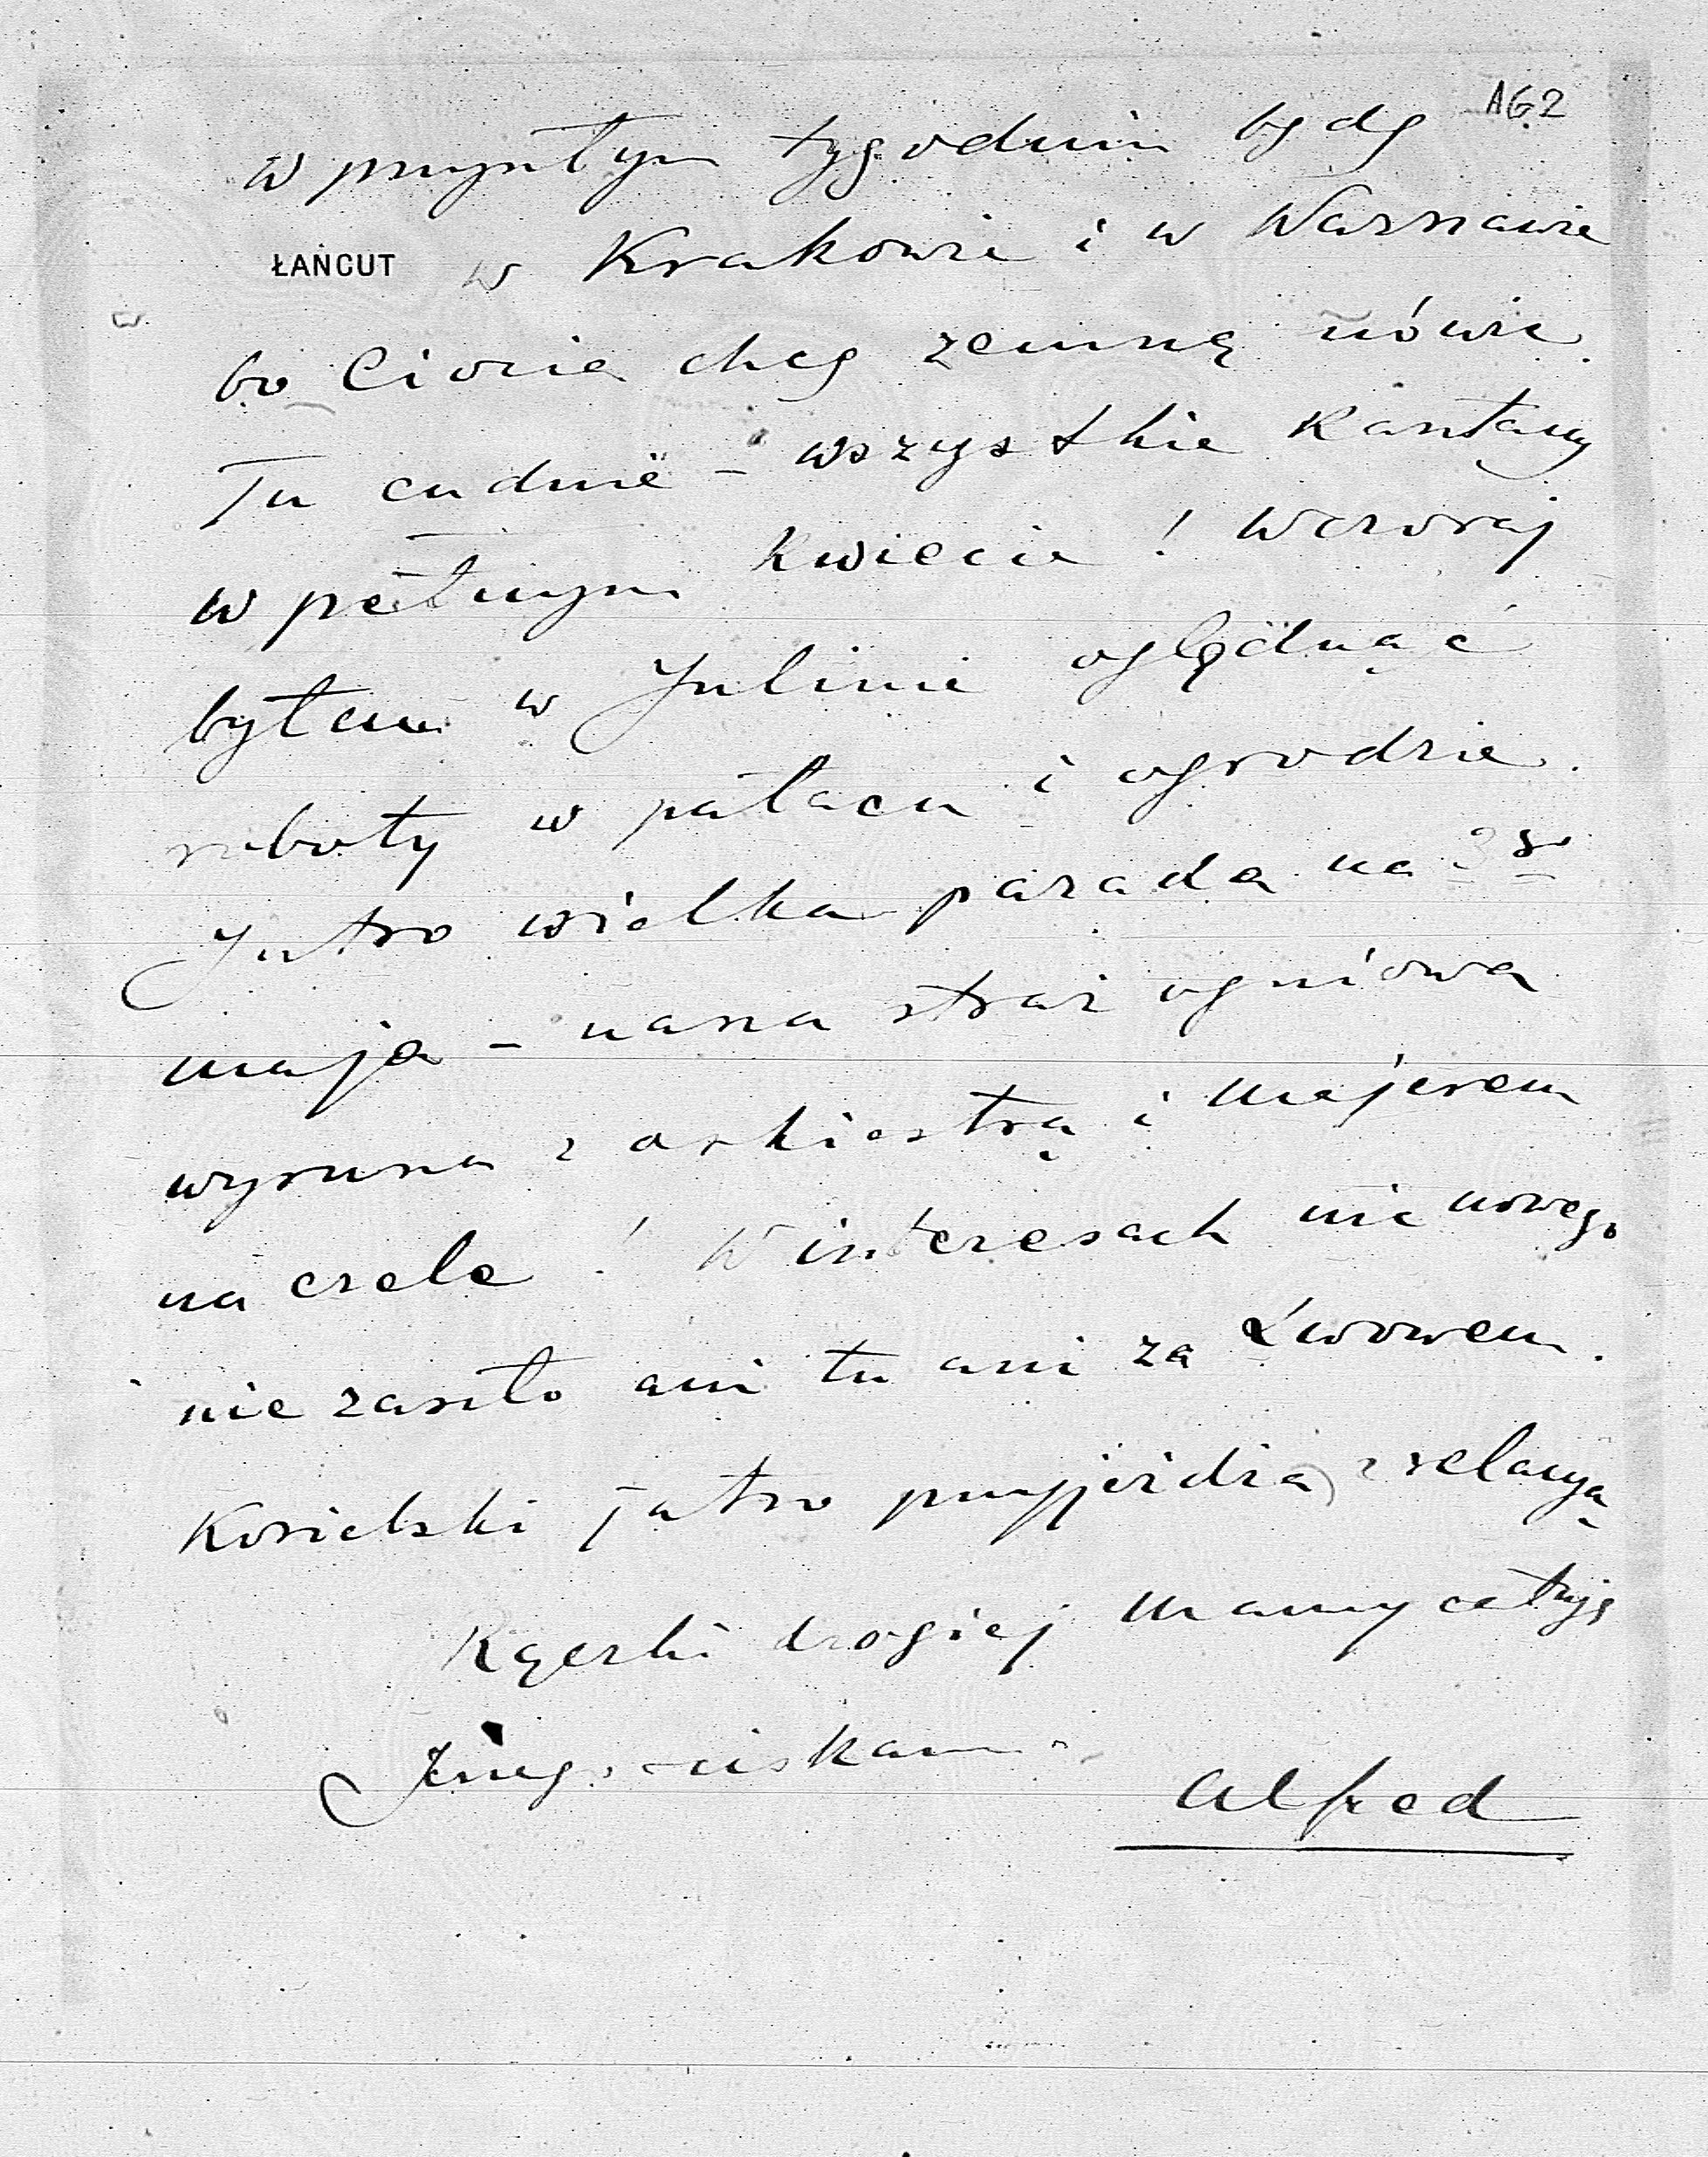 162
w przyszłym tygodniu będę
ŁAŃCUT
w Krakowie i w Warszawie
bo Ciocia chcę zemną mówić.
Tu cudnie - wszystkie Kasztany
w pełnym Kwiecie! Wczoraj
byłem w Julinie oglądnąć
roboty w pałacu i ogrodzie.
Jutro wielka parada na 3go
maja - nasza straż ogniowa
wyrusza z orkiestrą i majorem
na czele! W interesach nic nowego
nie zaszło ani tu ani za Lwowem.
Kosielski jutro przyjeżdża z relacyą
Rączki drogiej Mamy całuję
Jerzego ściskam
Alfred